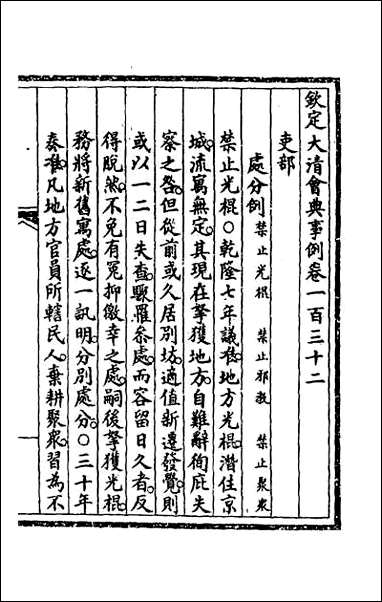 欽定大清會典事例卷一百三十二
吏部
處分例 禁止光棍 禁止邪教 禁止聚衆
禁止光棍○乾隆七年議准地方光棍潛住京
城流寓無定其現在拏獲地方自難辭徇庇失
察之咎但從前或久居別坊適值新遷發覺則
或以一二日失查驟罹參處而容留日久者反
得脫然不免有冤抑徼幸之處嗣後拏獲光棍
務將新舊寓處逐一訊明分別處分○三十年
奏准凡地方官員所轄民人棄耕聚衆習為不